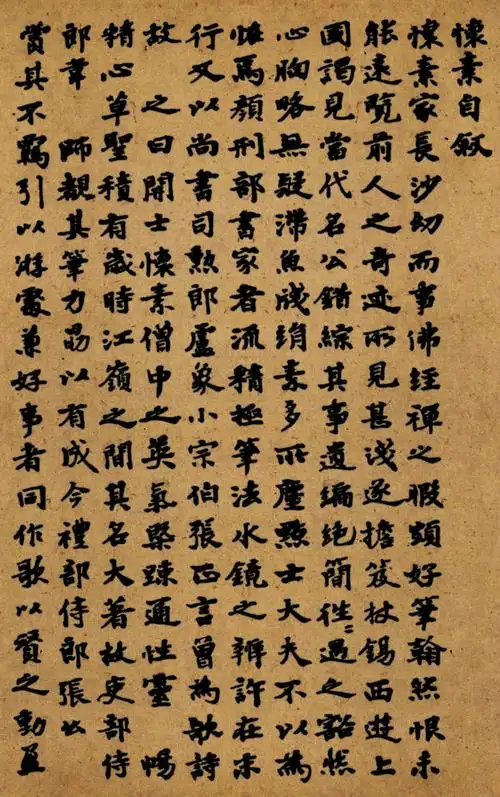 懷素自叙
懷素家長沙幼而事佛經禪之暇頗好筆翰然恨未
能遠覽前人之奇迹所見甚淺遂擔笈杖錫西遊上
國謁見當代名公錯綜其事遺編絕簡徃〻遇之豁然
心胸略無疑滯魚牋絹素多所塵點士大夫不以為
怪焉顏刑部書家者流精極筆法水鏡之辨許在末
行又以尚書司勲郎盧象小宗伯張正言曾為歌詩
故 之曰開士懷素僧中之英氣槩踈通性靈 暢
精心草聖積有歲時江嶺之間其名大著故吏部侍
郎韋 師覩其筆力勗以有成今禮部侍郎張公
賞其不羈引以游處兼好事者同作歌以贊之動盈